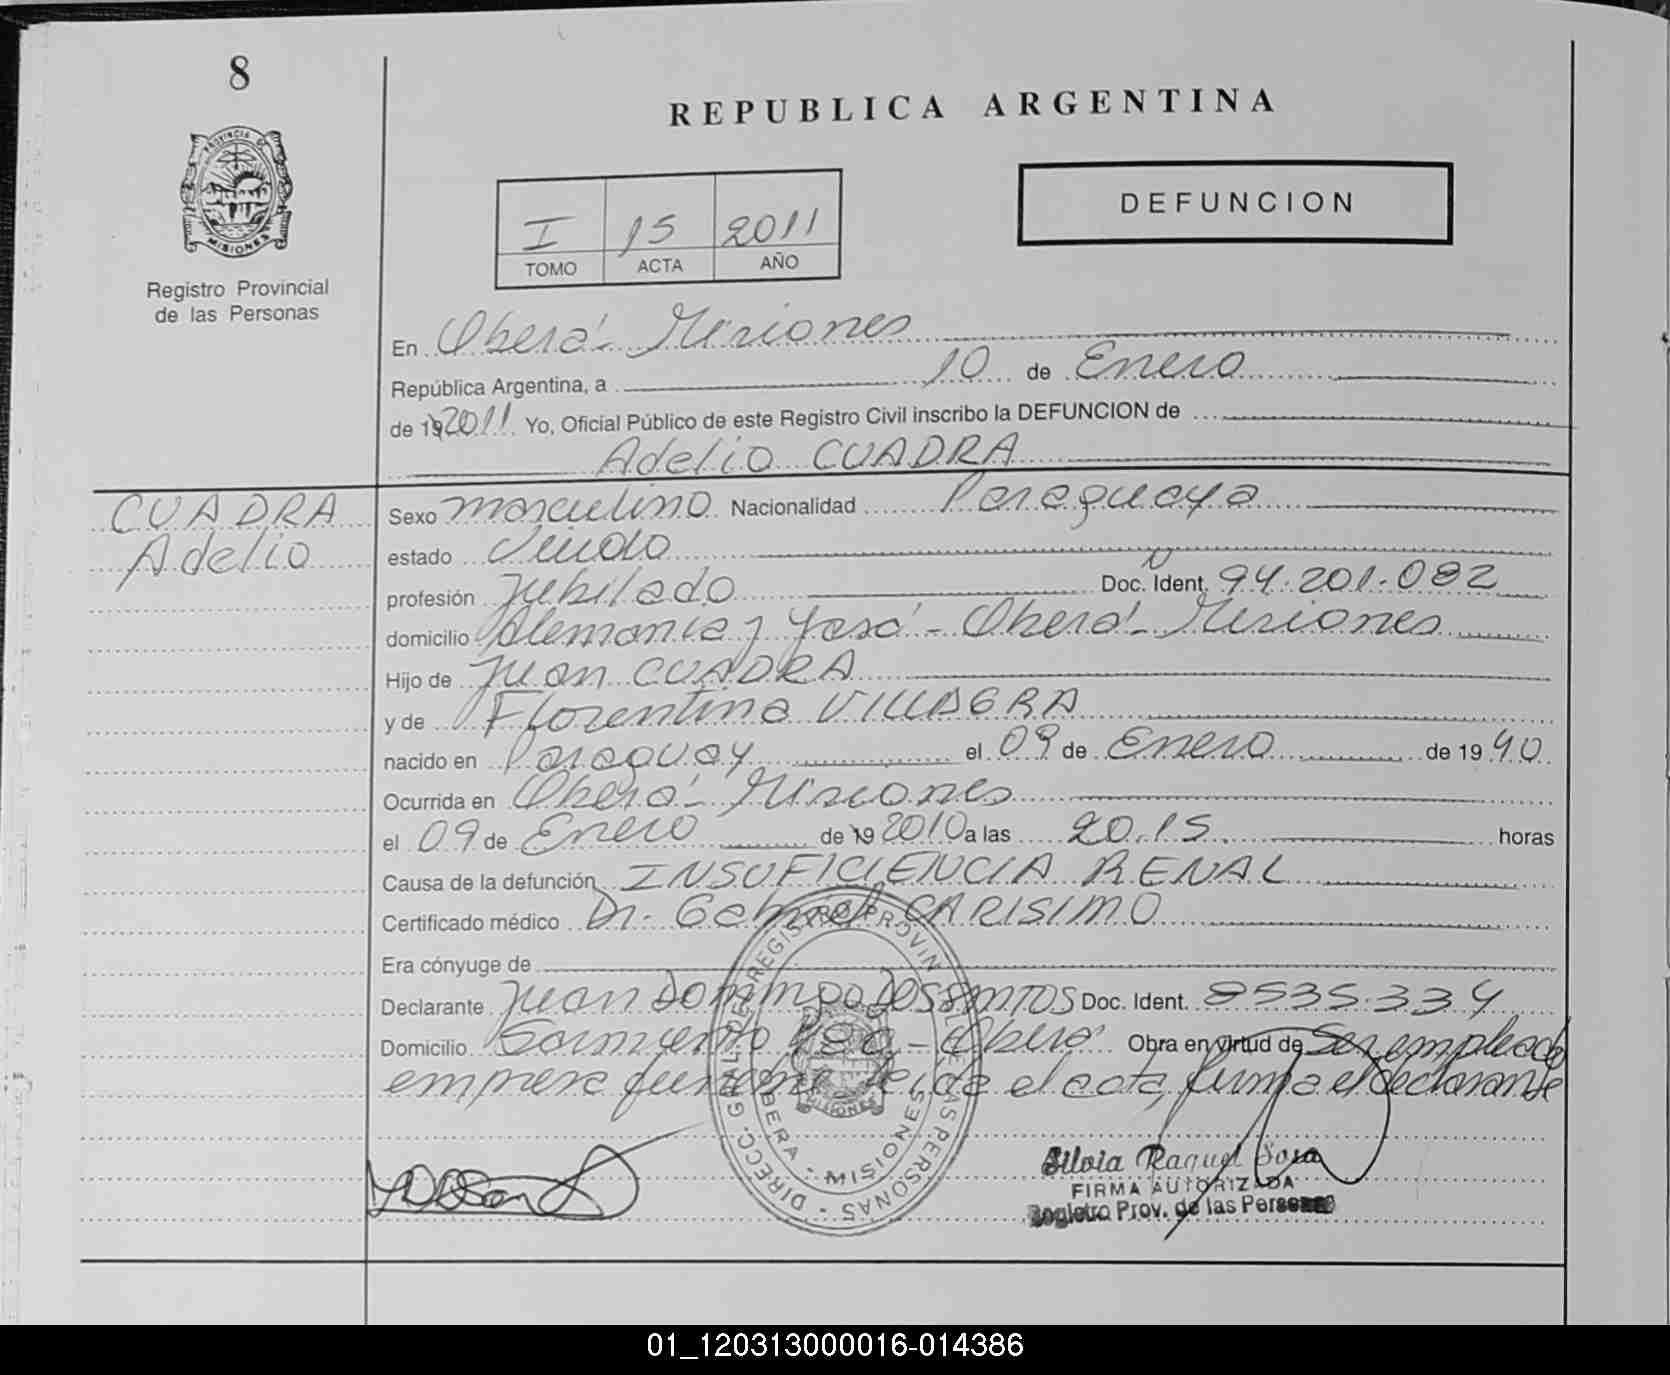 8
REPUBLICA ARGENTINA
PROVINCIA D
MISIONES
Registro Provincial
de las Personas
I 15 2011
TOMO ACTA AÑO
DEFUNCION
En Oberá - Misiones
República Argentina, a 10 de Enero
de 19 2011 Yo, Oficial Público de este Registro Civil inscribo la DEFUNCION de
Adelio CUADRA
CUADRA
Adelio
Sexo masculino Nacionalidad Paraguaya
estado Viudo
profesión Jubilado Doc. Ident. 94.201.082
domicilio Alemania y Yasá - Oberá - Misiones
Hijo de Juan CUADRA
y de Florentina VILLAGRA
nacido en Paraguay el 09 de Enero de 1940
Ocurrida en Oberá - Misiones
el 09 de Enero de 19 2010 a las 20.15 horas
Causa de la defunción INSUFICIENCIA RENAL
Certificado médico Dr. Gabriel CARISIMO
Era cónyuge de
Declarante Juan Domingo DOSSANTOS Doc. Ident. 8535.334
Domicilio Sarmiento - Oberá Obra en virtud de Ser empleado
empresa funebre leída el acta, firma el declarante
DIRECC. GRAL. DE REGISTRO PROVIN. DE LAS PERSONAS
OBERA - MISIONES
MISIONES
Silvia Raquel Sosa
FIRMA AUTORIZADA
Registro Prov. de las Personas
01_120313000016-014386